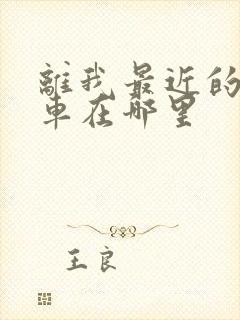 離我最近的
車在哪里
王良